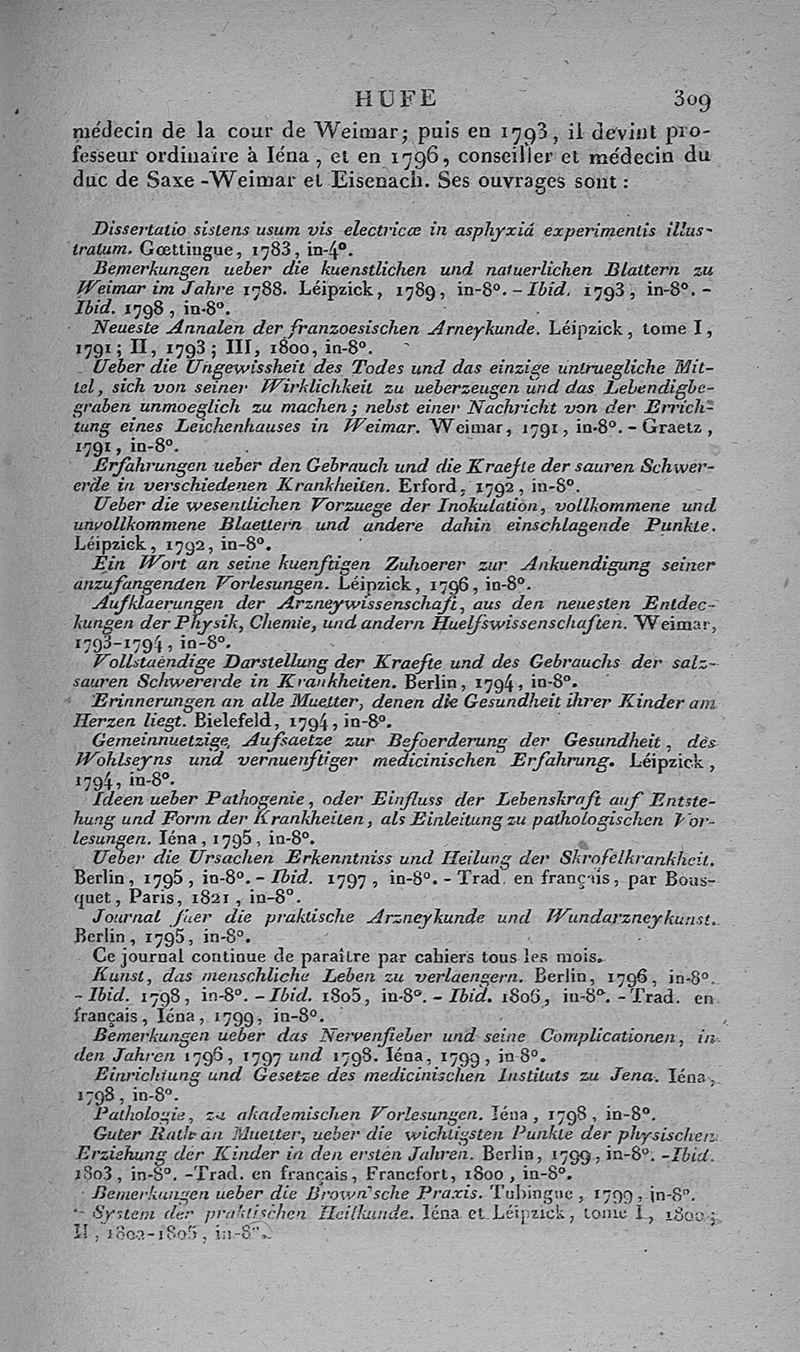 HUFE 309
médecin de la cour de Weimar; puis en 1793, il devint pro-
fesseur ordinaire à Iéna, et en 1796, conseiller et médecin du
duc de Saxe-Weimar et Eisenach. Ses ouvrages sont :
Dissertatio sistens usum vis electricæ in asphyxiá experimentis illus-
tratum. Gœttingue, 1783, in-4°.
Bemerkungen ueber die kuenstlichen und natuerlichen Blattern zu
Weimar im Jahre 1788. Léipzick, 1789, in-8°. - Ibid. 1793, in-8°. -
Ibid. 1798, in-8°.
Neueste Annalen der franzoesischen Arneykunde. Léipzick, tome I,
1791; II, 1793; III, 1800, in-8°.
Ueber die Ungewissheit des Todes und das einzige untruegliche Mit-
tel, sich von seiner Wirklichkeit zu ueberzeugen und das Lebendigbe-
graben unmoeglich zu machen; nebst einer Nachricht von der Errich-
tung eines Leichenhauses in Weimar. Weimar, 1791, in-8°. - Graetz,
1791, in-8°.
Erfahrungen ueber den Gebrauch und die Kraefte der sauren Schwer-
erde in verschiedenen Krankheiten. Erford, 1792, in-8°.
Ueber die wesentlichen Vorzuege der Inokulation, vollkommene und
unvollkommene Blaettern und andere dahin einschlagende Punkte.
Léipzick, 1792, in-8°.
Ein Wort an seine kuenftigen Zuhoerer zur Ankuendigung seiner
anzufangenden Vorlesungen. Léipzick, 1796, in-8°.
Aufklaerungen der Arzneywissenschaft, aus den neuesten Entdec-
kungen der Physik, Chemie, und andern Huelfswissenschaften. Weimar,
1793-1794, in-8°.
Vollstaendige Darstellung der Kraefte und des Gebrauchs der salz-
sauren Schwererde in Krankheiten. Berlin, 1794, in-8°.
Erinnerungen an alle Muetter, denen die Gesundheit ihrer Kinder am
Herzen liegt. Bielefeld, 1794, in-8°.
Gemeinnuetzige Aufsaetze zur Befoerderung der Gesundheit, des
Wohlseyns und vernuenftiger medicinischen Erfahrung. Léipzick,
1794, in-8°.
Ideen ueber Pathogenie, oder Einfluss der Lebenskraft auf Entste-
hung und Form der Krankheiten, als Einleitung zu pathologischen Vor-
lesungen. Iéna, 1795, in-8°.
Ueber die Ursachen Erkenntniss und Heilung der Skrofelkrankheit.
Berlin, 1795, in-8°. - Ibid. 1797, in-8°. - Trad. en français, par Bous-
quet, Paris, 1821, in-8°.
Journal fuer die praktische Arzneykunde und Wundarzneykunst.
Berlin, 1795, in-8°.
Ce journal continue de paraître par cahiers tous les mois.
Kunst, das menschliche Leben zu verlaengern. Berlin, 1796, in-8°.
- Ibid. 1798, in-8°. - Ibid. 1805, in-8°. - Ibid. 1806, in-8°. - Trad. en
français, Iéna, 1799, in-8°.
Bemerkungen ueber das Nervenfieber und seine Complicationen, in
den Jahren 1796, 1797 und 1798. Iéna, 1799, in-8°.
Einrichtung und Gesetze des medicinischen Instituts zu Jena. Iéna,
1798, in-8°.
Pathologie, zu akademischen Vorlesungen. Iéna, 1798, in-8°.
Guter Rath an Muetter, ueber die wichtigsten Punkte der physischen
Erziehung der Kinder in den ersten Jahren. Berlin, 1799, in-8°. - Ibid.
1803, in-8°. - Trad. en français, Francfort, 1800, in-8°.
Bemerkungen ueber die Brown'sche Praxis. Tubingue, 1799, in-8°.
System der praktischen Heilkunde. Iéna et Léipzick, tome I, 1800;
II, 1802-1805, in-8°.